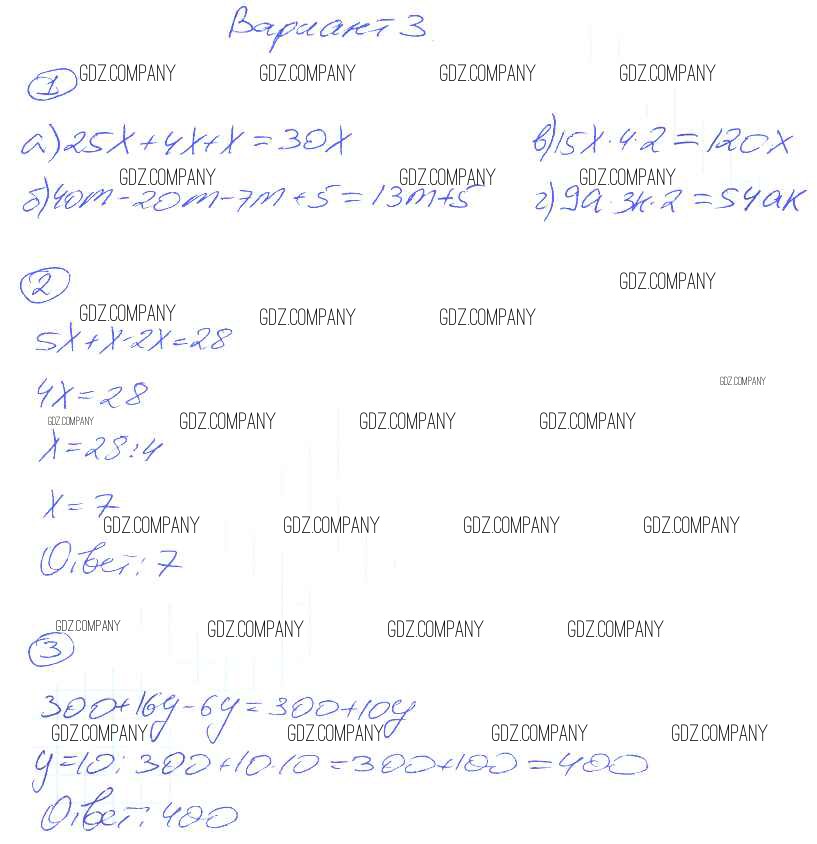 Вариант 3
1
GDZ.COMPANY GDZ.COMPANY GDZ.COMPANY GDZ.COMPANY
а) 25x + 4x + x = 30x
в) 15x · 4 · 2 = 120x
GDZ.COMPANY GDZ.COMPANY GDZ.COMPANY
б) 40m - 20m - 7m + 5 = 13m + 5
г) 9a · 3к · 2 = 54aк
2
GDZ.COMPANY
GDZ.COMPANY GDZ.COMPANY GDZ.COMPANY
5x + x - 2x = 28
GDZ.COMPANY
4x = 28
GDZ.COMPANY GDZ.COMPANY GDZ.COMPANY GDZ.COMPANY
x = 28 : 4
x = 7
GDZ.COMPANY GDZ.COMPANY GDZ.COMPANY GDZ.COMPANY
Ответ: 7
GDZ.COMPANY GDZ.COMPANY GDZ.COMPANY GDZ.COMPANY
3
300 + 16y - 6y = 300 + 10y
GDZ.COMPANY GDZ.COMPANY GDZ.COMPANY GDZ.COMPANY
y = 10; 300 + 10 · 10 = 300 + 100 = 400
Ответ: 400